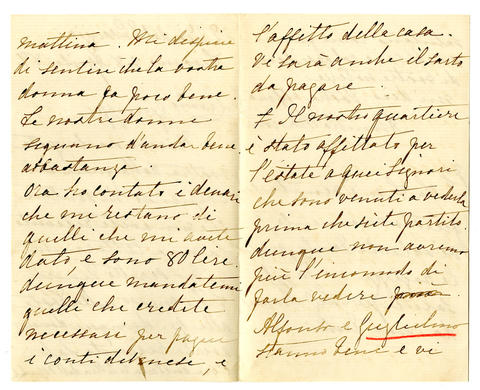 mattina. Mi dispiace
di sentire che la vostra
donna fa poco bene.
Le nostre donne
seguono d'andar bene
abbastanza.
Ora ho contato i denari
che mi restano di
quelli che mi avete
dato, e sono 80 lere.
dunque mandatemi
quelli che credete
necessari per pagare
i conti di mese, e
l'affitto della casa.
Vi sarà anche il sarto
da pagare.
Il nostro quartiere
è stato affittato per
l'estate a quei Signori
che sono venuti a vederla
prima che siete partito.
dunque non avremo
più l'incomodo di
farla vedere
Alfonso e Guglielmo
stanno bene e vi